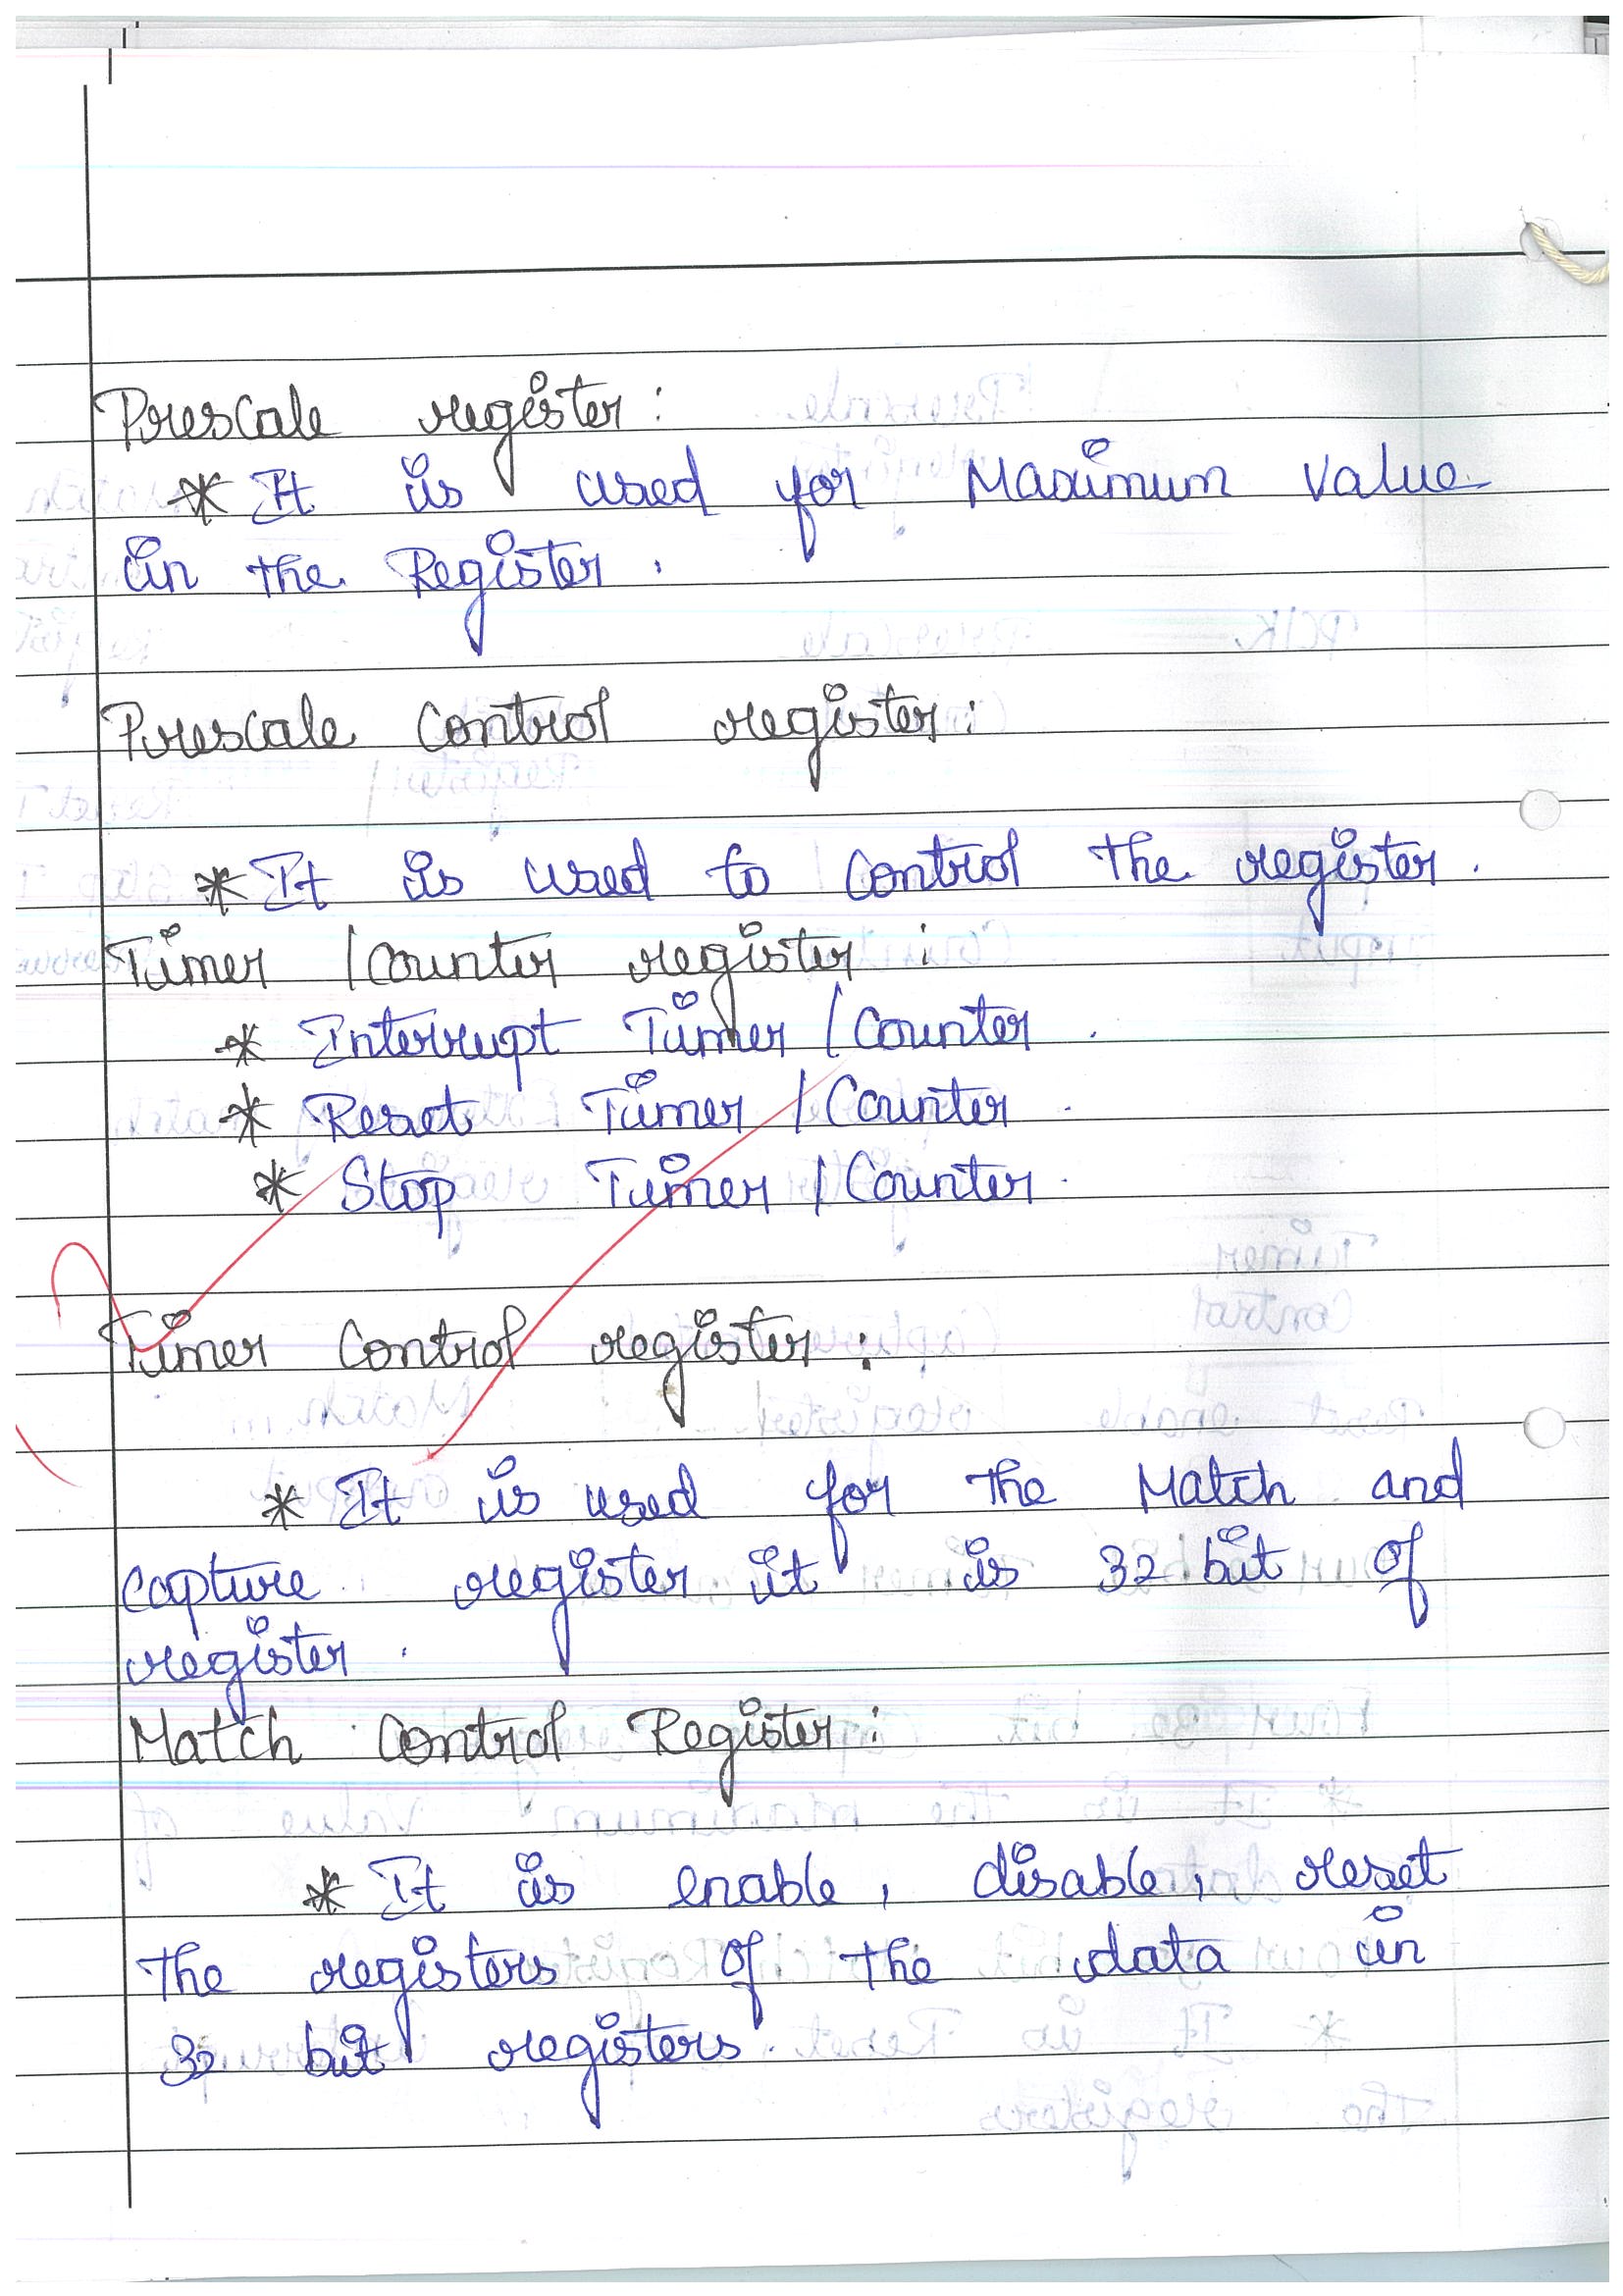 Prescale register:
* It is used for Maximum value
in the Register.
Prescale Control register:
* It is used to control the register.
Timer / counter register:
* Interrupt Timer / Counter.
* Reset Timer / Counter.
* Stop Timer / Counter.
Timer Control register:
* It is used for the Match and
capture register it is 32 bit of
register.
Match Control Register:
* It is enable, disable, reset
the registers of the data in
32 bit registers.